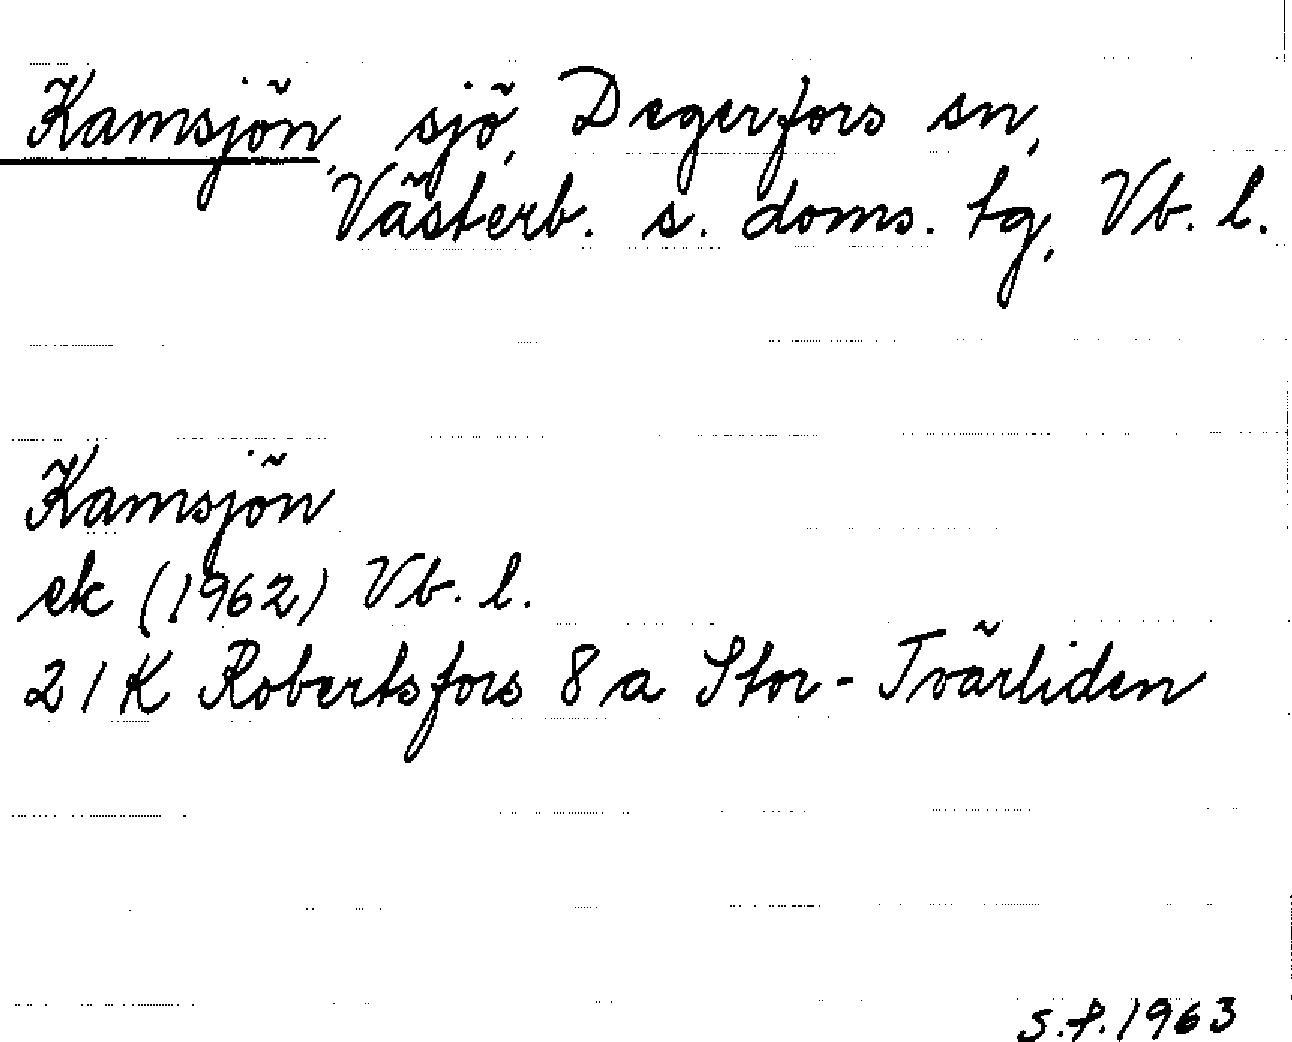 Kamsjön, sjö, Degerfors sn,
Västerb. s. doms. tg, Vb. l.
Kamsjön
ek (1962) Vb. l.
21K Robertsfors 8a Stor-Tvärliden
S.P.1963